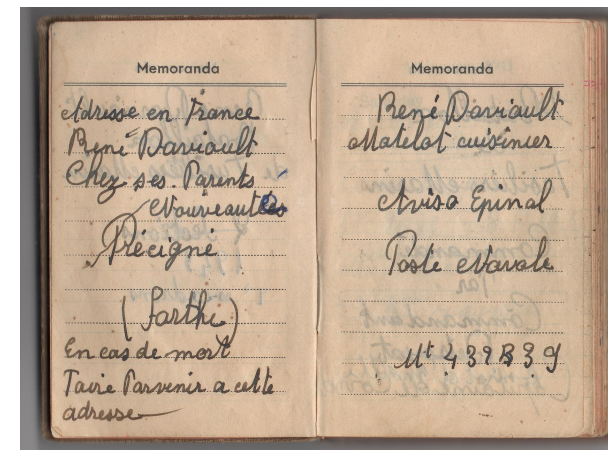 Memoranda
Adresse en France
René Daviault
Chez ses Parents
Nouveautés
Précigné
(Sarthe)
En cas de mort
Faire Parvenir a cette
adresse
Memoranda
René Daviault
Matelot cuisinier
Aviso Epinal
Poste Navale
Mt 439B39